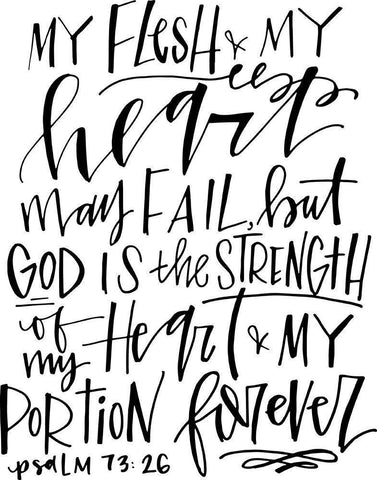 MY FLesH & MY
heart
may FAIL, but
GOD IS the STRENGTH
of my Heart & MY
PORTION forever
psaLM 73:26